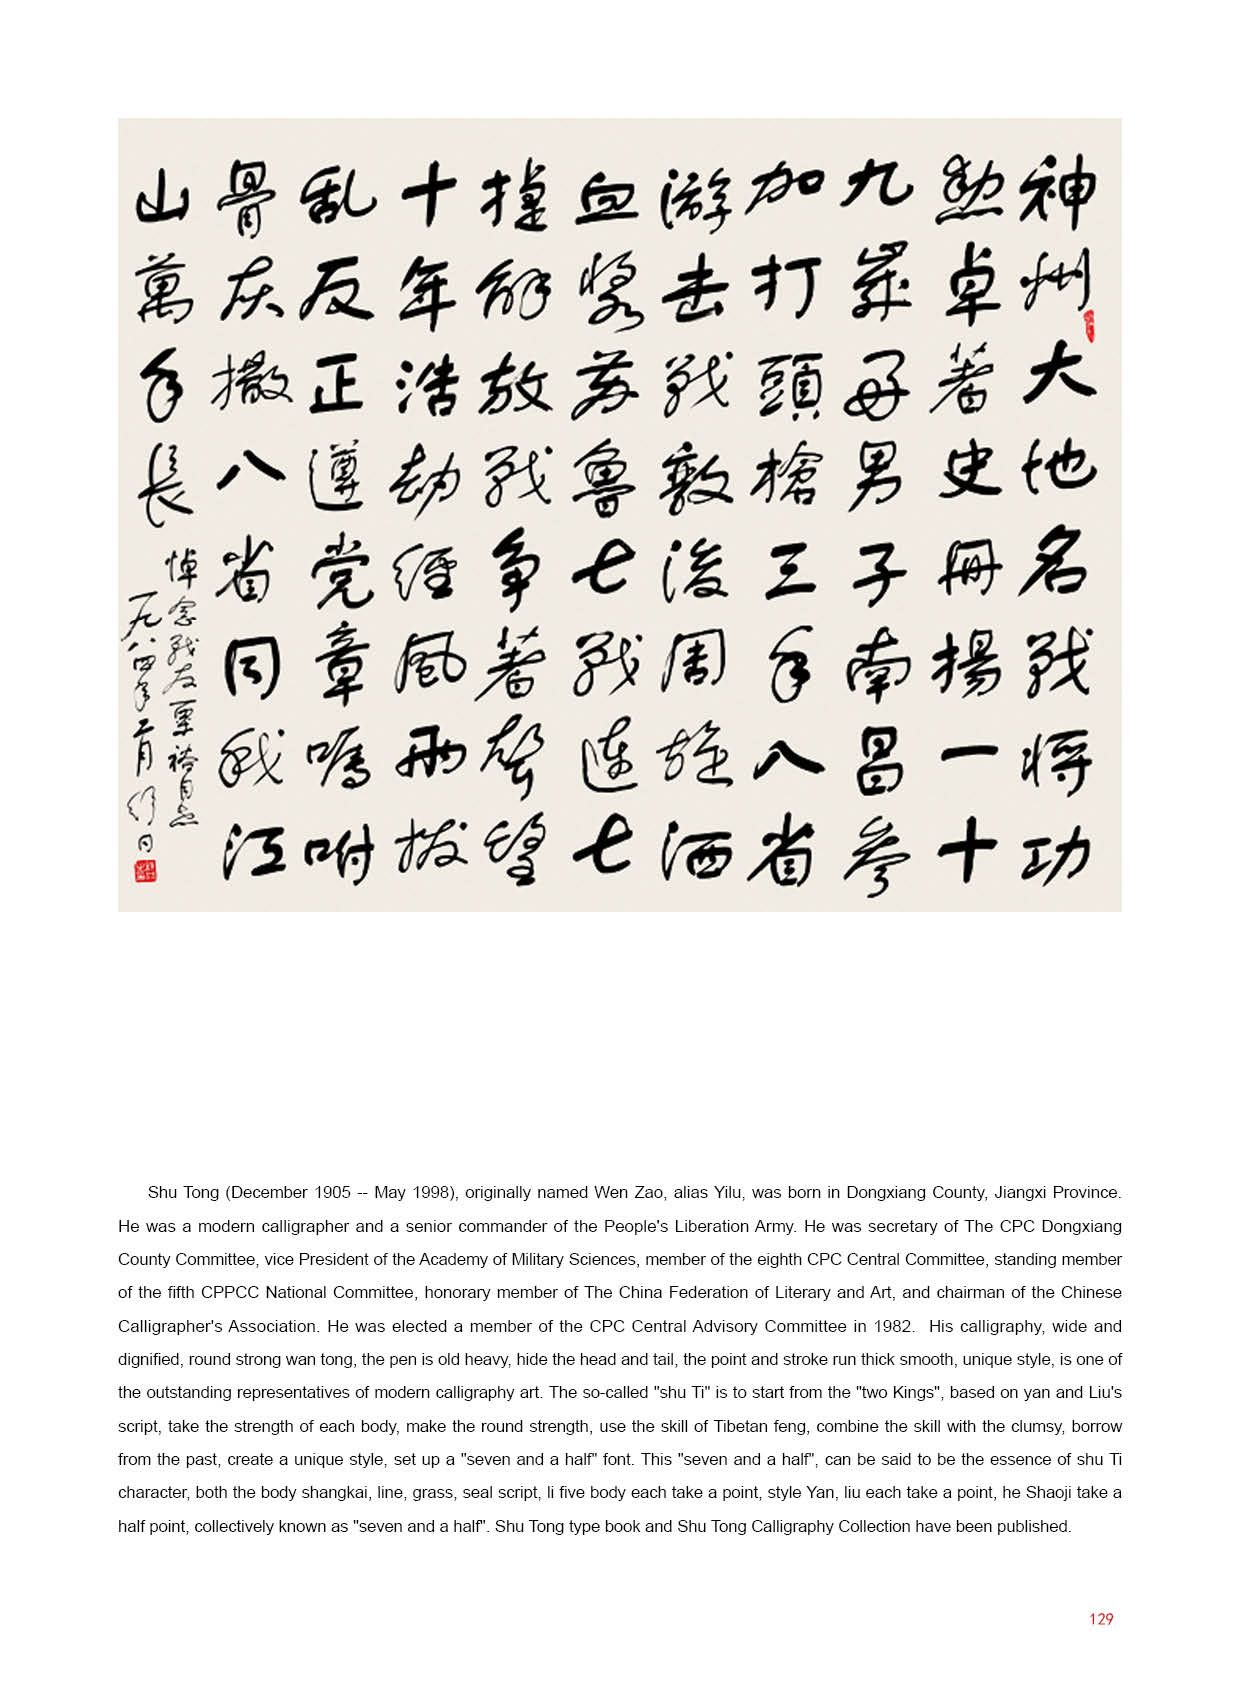 神州大地名戰將功
勲卓著史冊揚一十
九歲好男子南昌參
加打頭槍三年八省
游击戰敵後周旋洒
血漿蘇魯七戰連七
捷解放戰争著聲望
十年浩劫經風雨拨
乱反正遵党章嘱咐
骨灰撒八省同我江
山萬年長
悼念戰友粟裕同志
一九八四年二月舒同
Shu Tong (December 1905 -- May 1998), originally named Wen Zao, alias Yilu, was born in Dongxiang County, Jiangxi Province.
He was a modern calligrapher and a senior commander of the People's Liberation Army. He was secretary of The CPC Dongxiang
County Committee, vice President of the Academy of Military Sciences, member of the eighth CPC Central Committee, standing member
of the fifth CPPCC National Committee, honorary member of The China Federation of Literary and Art, and chairman of the Chinese
Calligrapher's Association. He was elected a member of the CPC Central Advisory Committee in 1982. His calligraphy, wide and
dignified, round strong wan tong, the pen is old heavy, hide the head and tail, the point and stroke run thick smooth, unique style, is one of
the outstanding representatives of modern calligraphy art. The so-called "shu Ti" is to start from the "two Kings", based on yan and Liu's
script, take the strength of each body, make the round strength, use the skill of Tibetan feng, combine the skill with the clumsy, borrow
from the past, create a unique style, set up a "seven and a half" font. This "seven and a half", can be said to be the essence of shu Ti
character, both the body shangkai, line, grass, seal script, li five body each take a point, style Yan, liu each take a point, he Shaoji take a
half point, collectively known as "seven and a half". Shu Tong type book and Shu Tong Calligraphy Collection have been published.
129